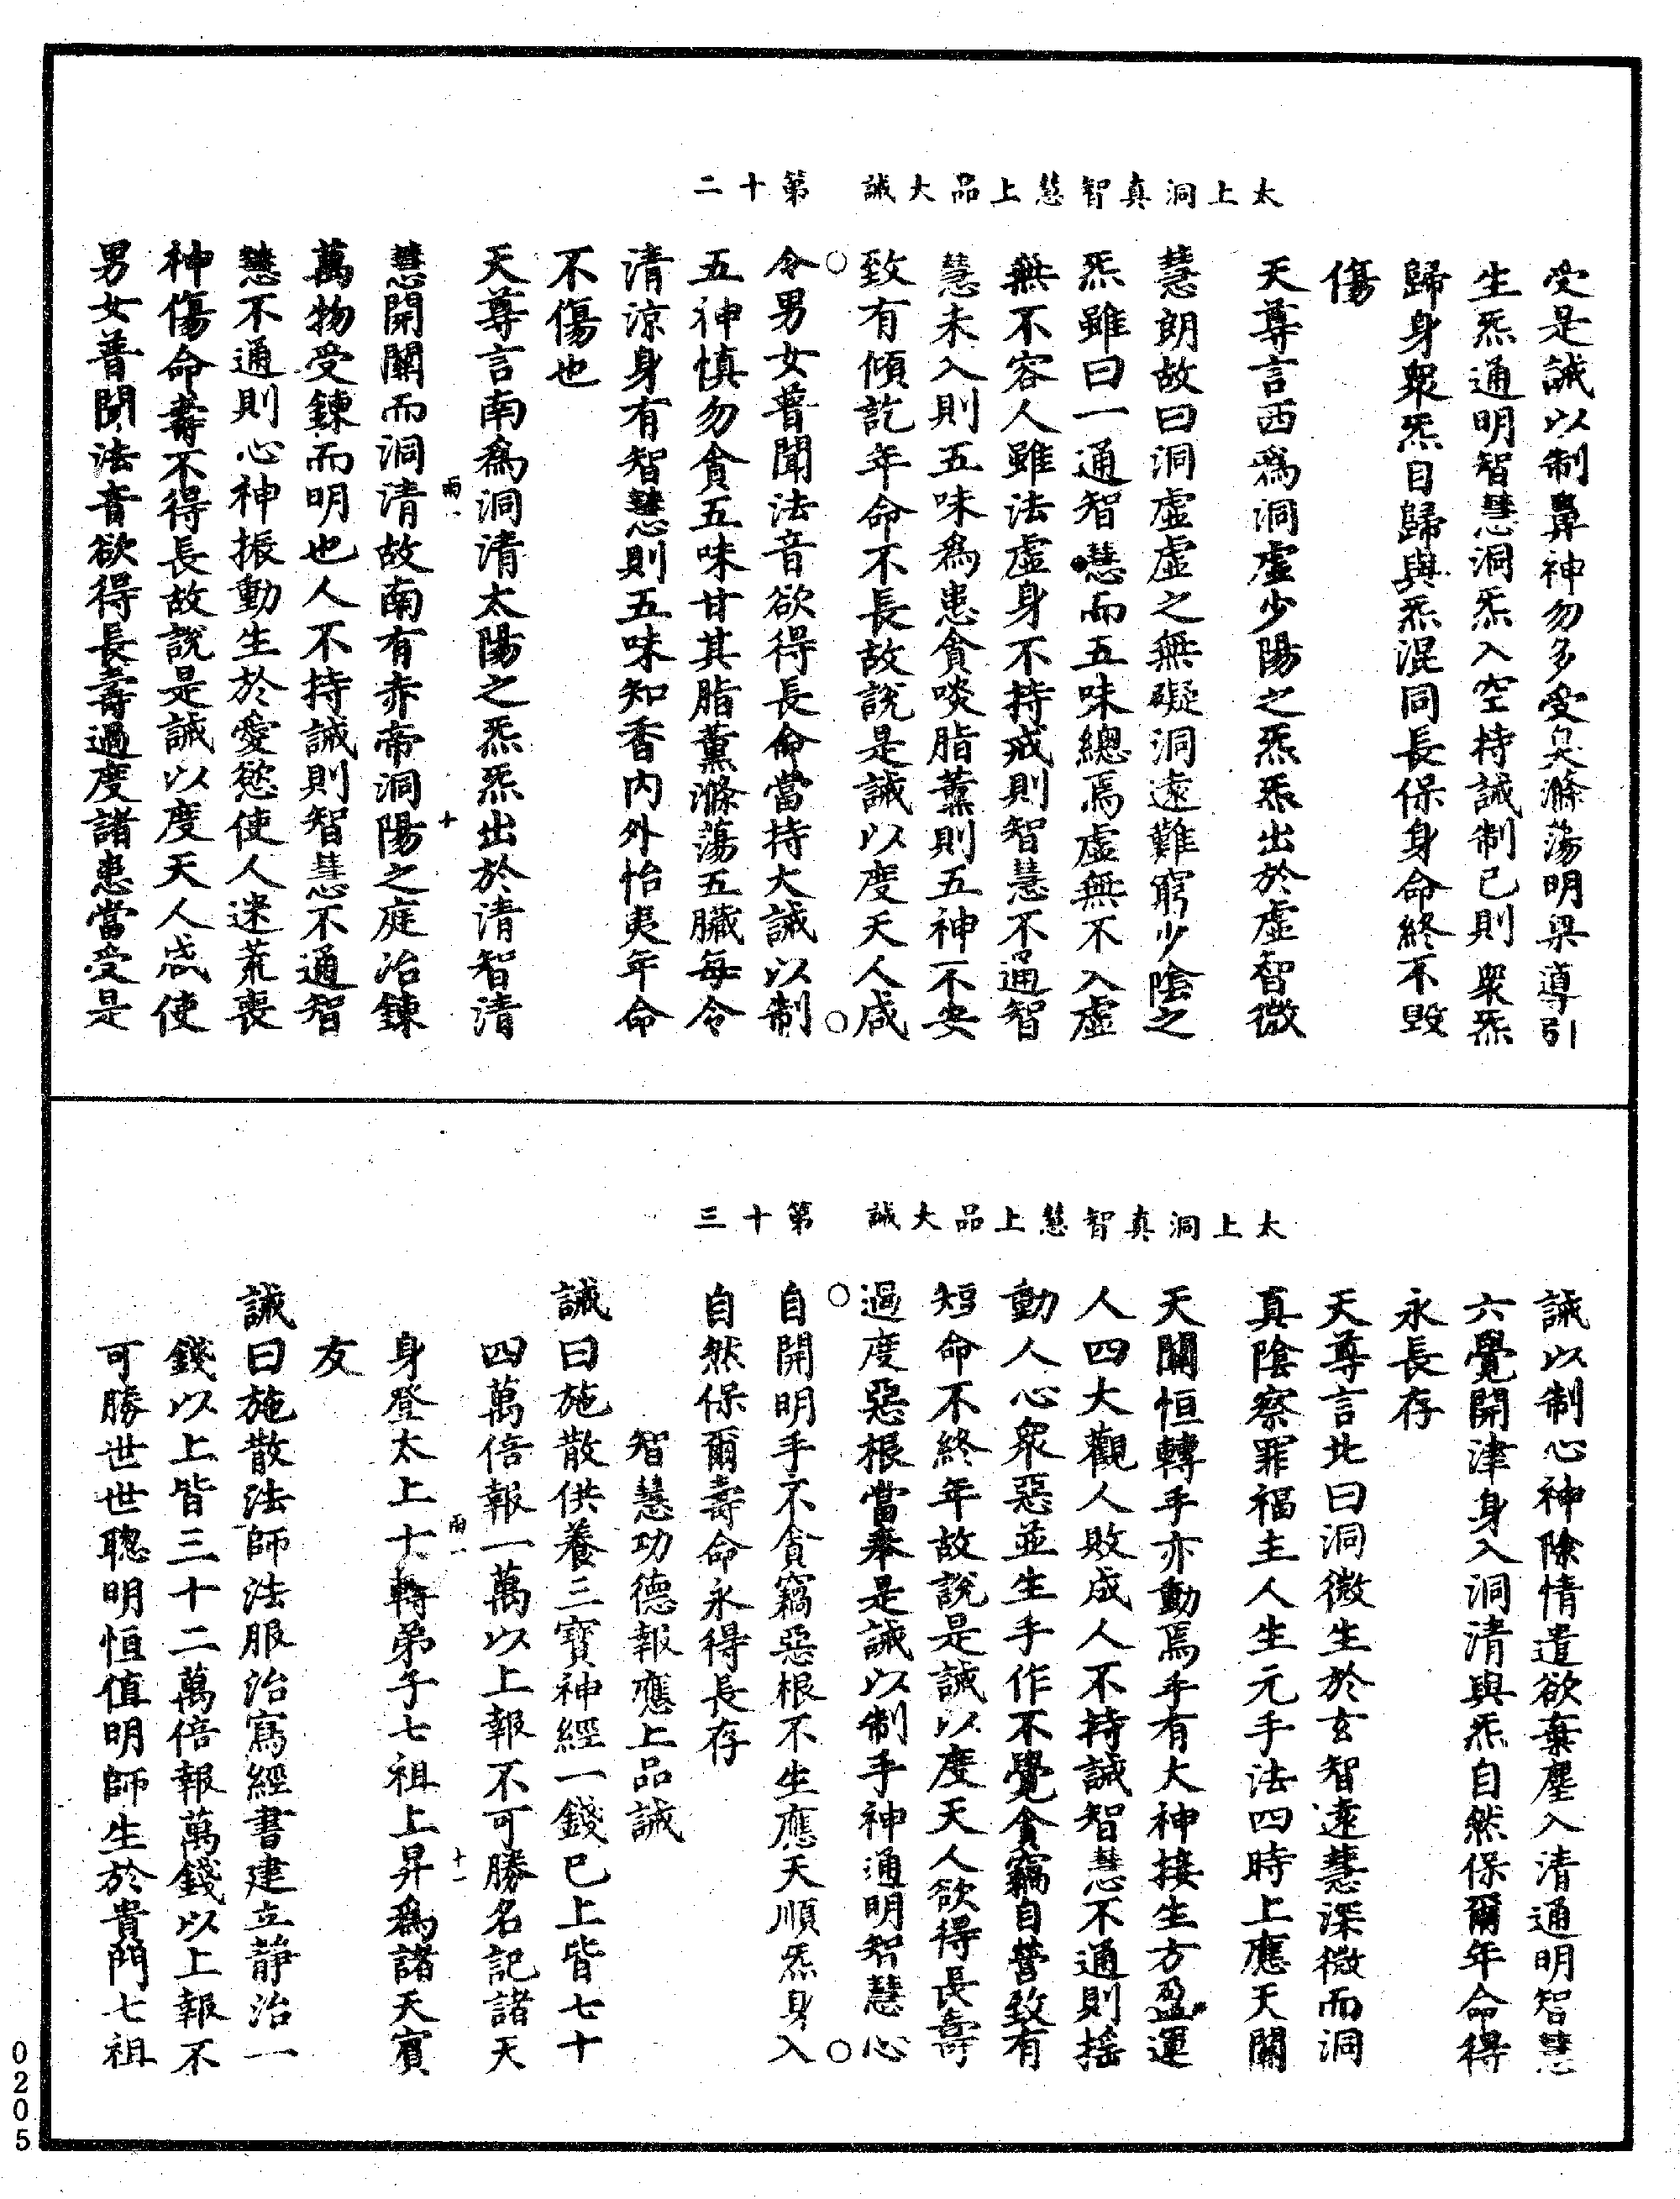 太上洞真智慧上品大誡　第十二
受是誡以制鼻神勿多受臭滌蕩明梁導引
生炁通明智慧洞炁入空持誡制已則眾炁
歸身眾炁自歸與炁混同長保身命終不毀
傷
天尊言西爲洞虛少陽之炁炁出於虛智微
慧朗故曰洞虛虛之無礙洞遠難窮少陰之
炁雖曰一通智慧而五味總焉虛無不入虛
無不容人雖法虛身不持戒則智慧不通智
慧未入則五味爲患貪啖脂薰則五神不安
致有傾訖年命不長故說是誡以度天人咸
令男女普聞法音欲得長命當持大誡以制
五神慎勿貪五味甘其脂薰滌蕩五臟每令
清涼身有智慧則五味知香內外怡夷年命
不傷也
天尊言南爲洞清太陽之炁炁出於清智清
雨一
十
慧開關而洞清故南有赤帝洞陽之庭冶鍊
萬物受鍊而明也人不持誡則智慧不通智
慧不通則心神振動生於愛慾使人迷荒喪
神傷命壽不得長故說是誡以度天人咸使
男女普聞法音欲得長壽過度諸患當受是
太上洞真智慧上品大誡　第十三
誡以制心神除情遣欲棄塵入清通明智慧
六覺開津身入洞清與炁自然保爾年命得
永長存
天尊言北曰洞微生於玄智遠慧深微而洞
真陰察罪福主人生元手法四時上應天關
天關恒轉手亦動焉手有大神接生方盈運
人四大觀人敗成人不持誡智慧不通則搖
動人心眾惡並生手作不覺貪竊自營致有
短命不終年故說是誡以度天人欲得長壽
過度惡根當奉是誡以制手神通明智慧心
自開明手不貪竊惡根不生應天順炁身入
自然保爾壽命永得長存
智慧功德報應上品誡
誡曰施散供養三寶神經一錢已上皆七十
四萬倍報一萬以上報不可勝名記諸天
雨一
十一
身登太上十轉弟子七祖上昇爲諸天賓
友
誡曰施散法師法服治寫經書建立靜治一
錢以上皆三十二萬倍報萬錢以上報不
可勝世世聰明恒值明師生於貴門七祖
0205